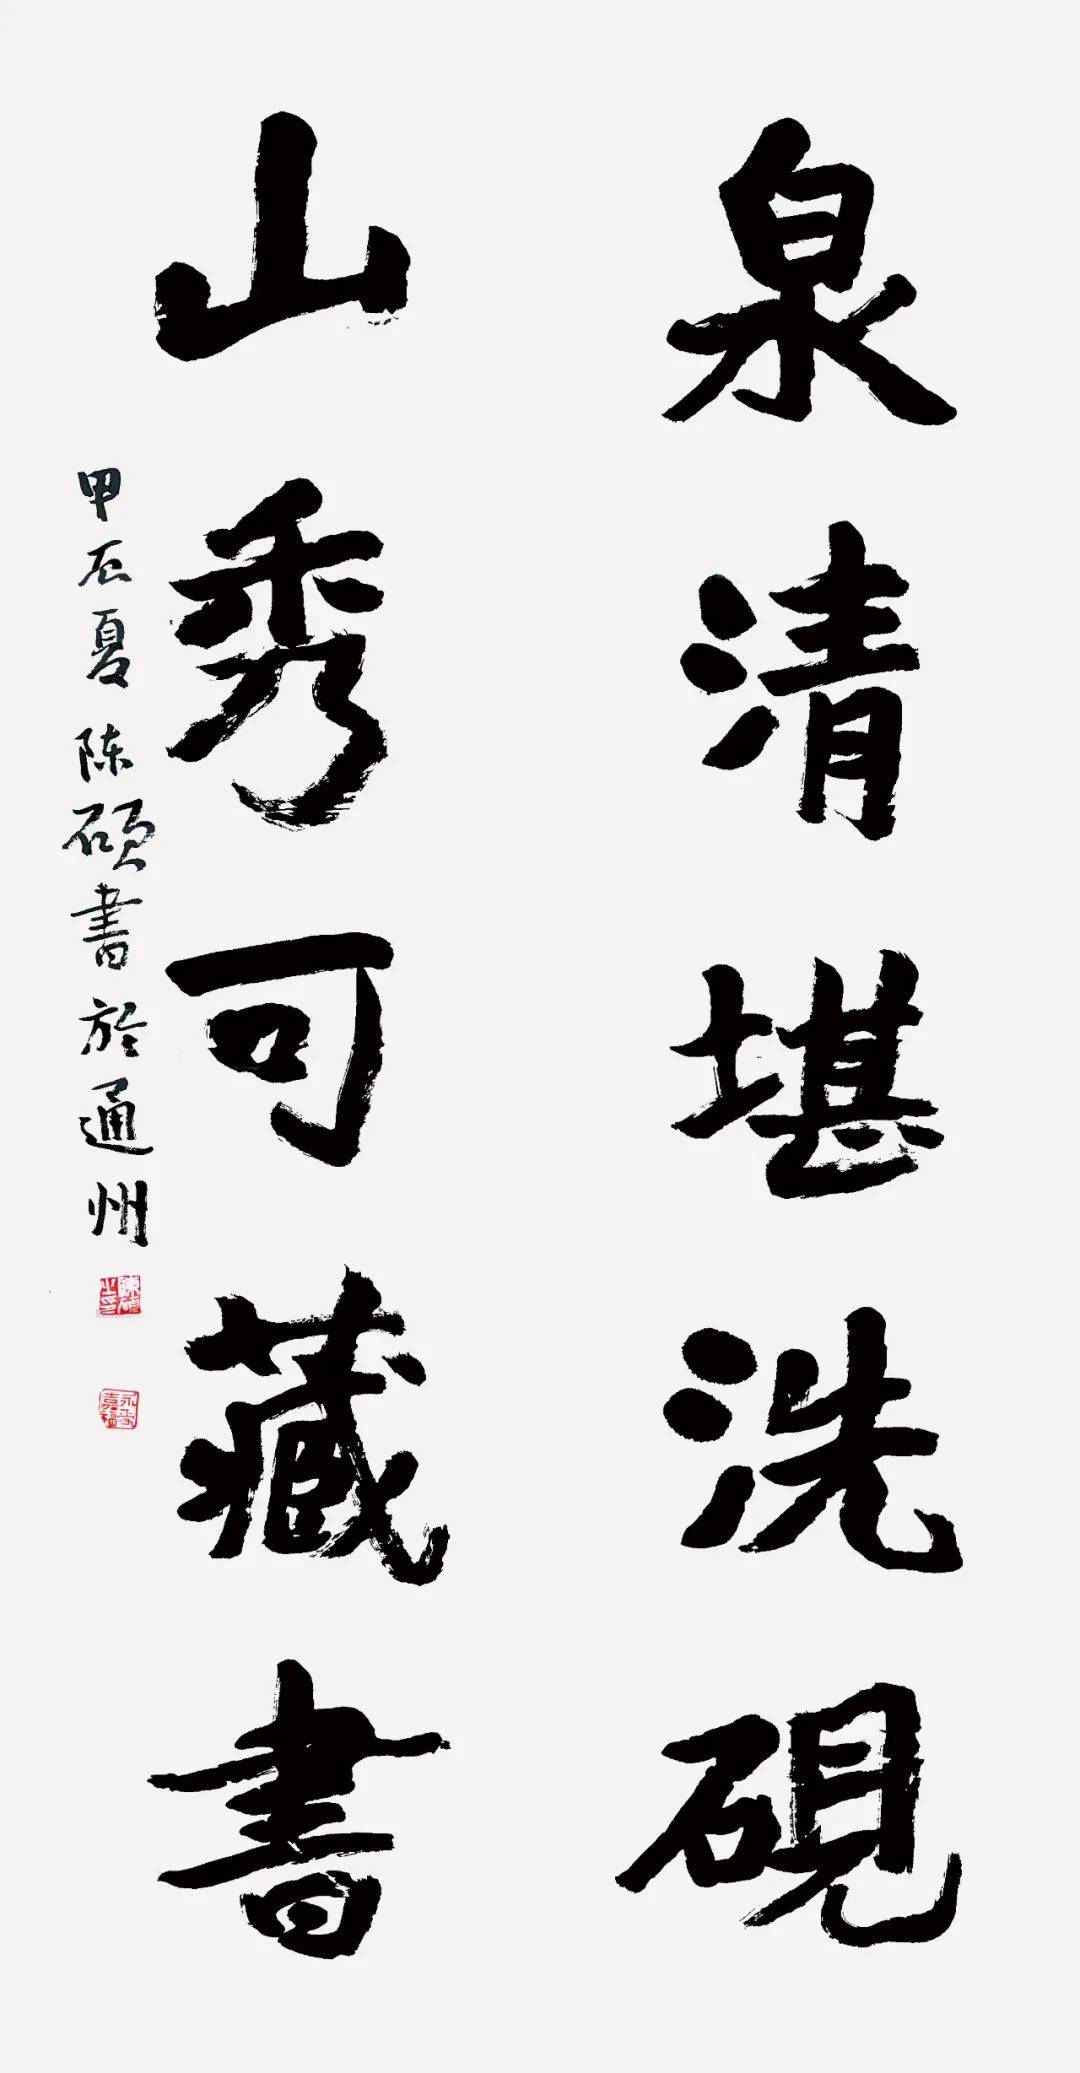 泉清堪洗硯
山秀可藏書
甲辰夏陈硕書於通州